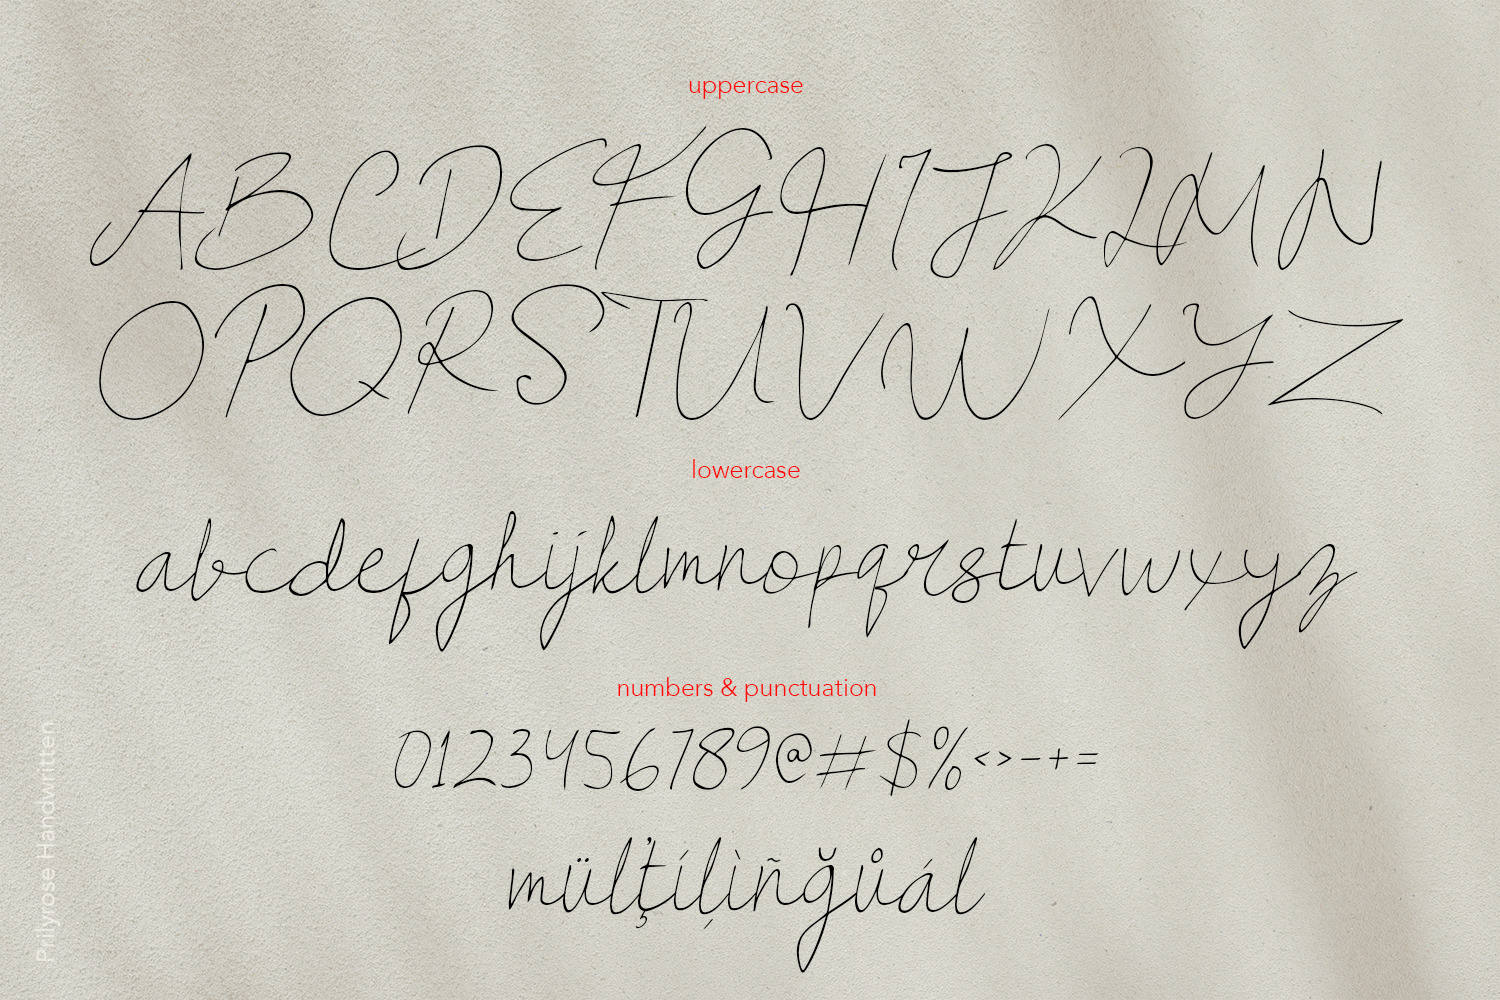 uppercase
ABCDEFGHIJKLMN
OPQRSTUVWXYZ
lowercase
abcdefghijklmnopqrstuvwxyz
numbers & punctuation
0123456789@#$%<>-+=
mülţíļìñğůál
Prilyrose Handwritten